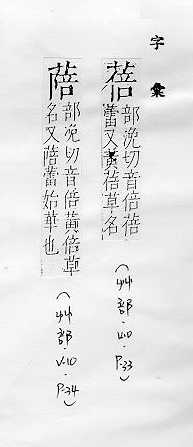 字彙
蓓
部浼切音倍蓓
蕾又黃蓓草名
(艸部.V.10.P.33)
部浼切音倍黃倍草
名又蕾始華也
(艸部.V.10.P.34)